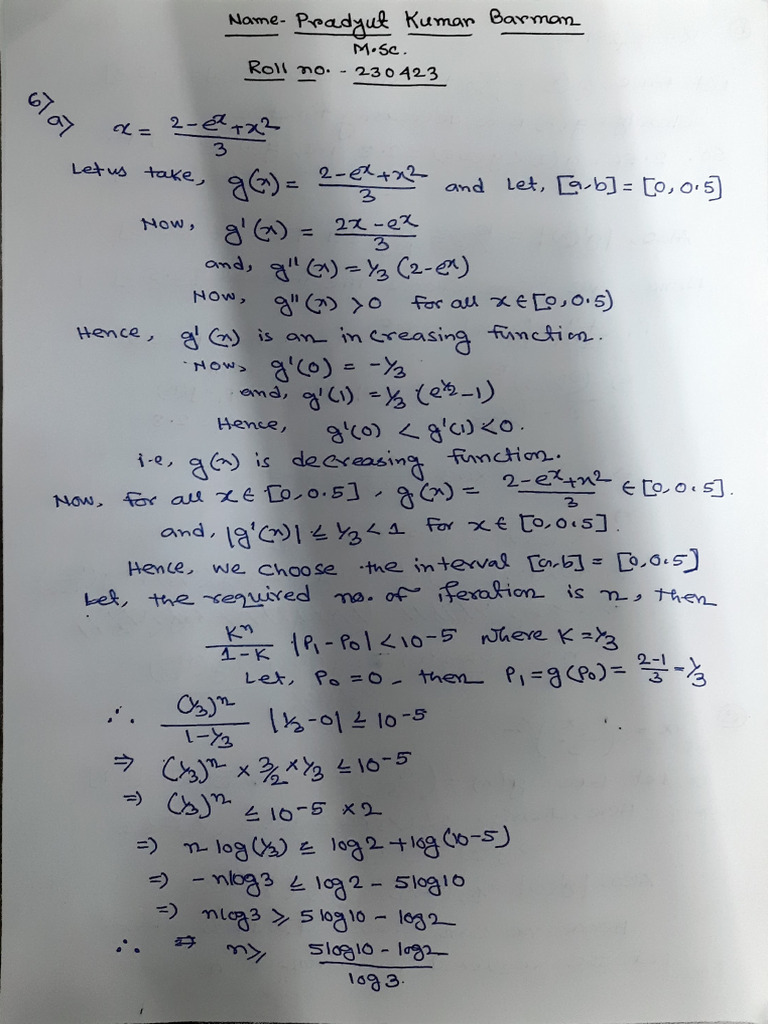 Name- Pradyut Kumar Barman
M.Sc.
Roll no. - 230423
6)
a) x = (2-e^x+x^2)/3
Let us take, g(x) = (2-e^x+x^2)/3 and let, [a,b] = [0,0.5]
Now, g'(x) = (2x-e^x)/3
and, g''(x) = 1/3 (2-e^x)
Now, g''(x) >0 for all x ∈ [0,0.5)
Hence, g'(x) is an increasing function.
Now, g'(0) = -1/3
and, g'(1) = 1/3 (e^1/2 -1)
Hence, g'(0) < g'(1) <0.
i.e, g(x) is decreasing function.
Now, for all x ∈ [0,0.5], g(x) = (2-e^x+x^2)/3 ∈ [0,0.5].
and, |g'(x)| ≤ 1/3 < 1 for x ∈ [0,0.5].
Hence, we choose the interval [a,b] = [0,0.5]
Let, the required no. of iferation is n, then
K^n/(1-K) |P1-P0| < 10-5 where K = 1/3
Let, P0 = 0 - then P1 = g(P0) = (2-1)/3 = 1/3
∴ (1/3)^n/(1-1/3) |1/3-0| ≤ 10-5
⇒ (1/3)^n × 3/2 × 1/3 ≤ 10-5
⇒ (1/3)^n ≤ 10-5 × 2
⇒ n log(1/3) ≤ log2 + log(10-5)
⇒ -nlog3 ≤ log2 - 5log10
⇒ nlog3 ≥ 5log10 - log2
∴ ⇒ n ≥ (5log10 - log2)/log3.